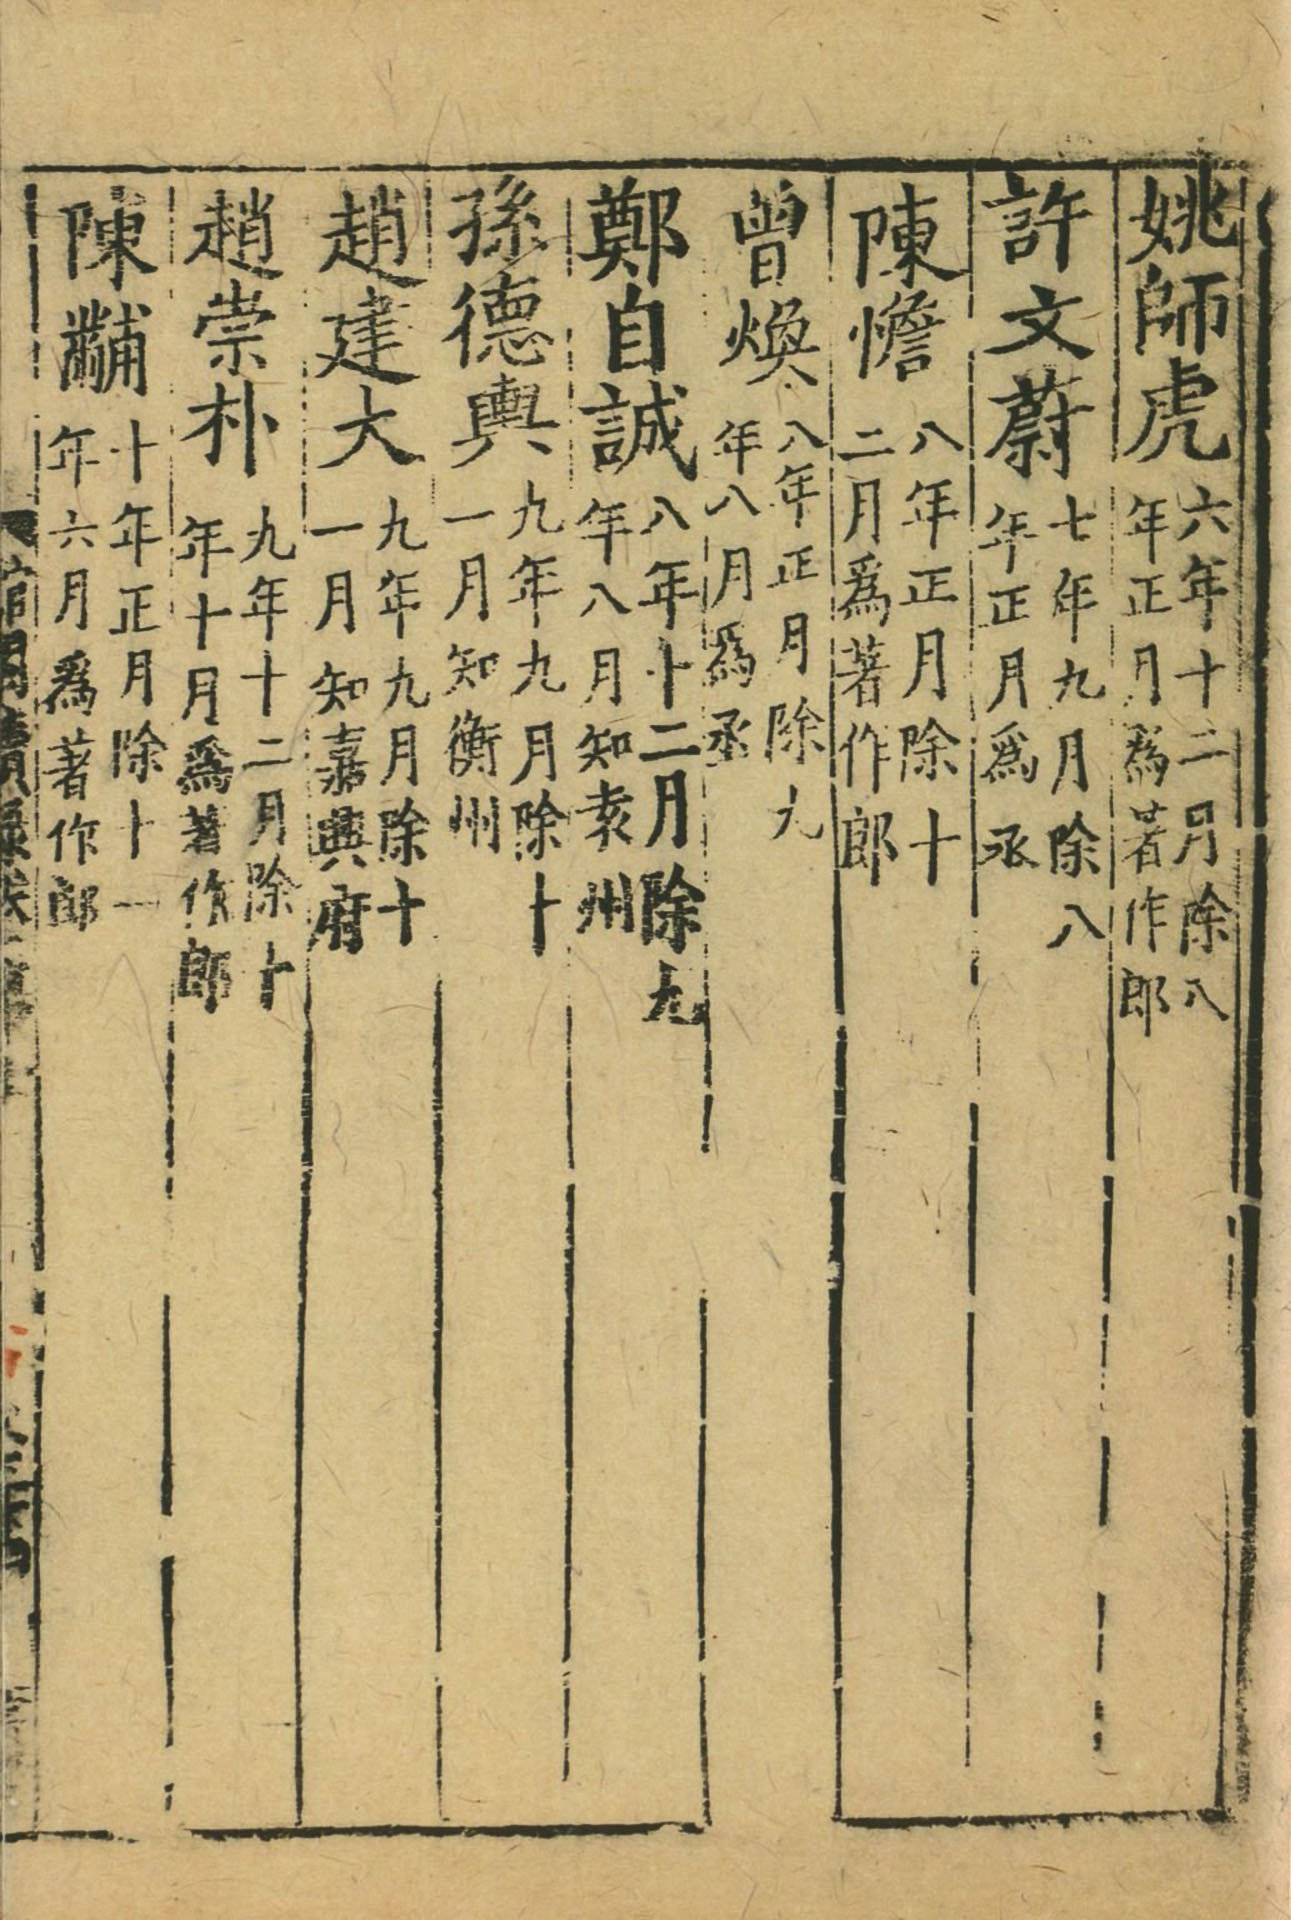 姚師虎六年十二月除八年正月為著作郎
許文蔚七年九月除八年正月爲丞
陳憺八年正月除十二月爲著作郎
曾煥八年正月除九年八月爲丞
鄭自誠八年十二月除九年八月知袁州
孫德輿九年九月除十一月知衡州
趙建大九年九月除十一月知嘉興府
趙崇朴九年十二月除十年十月爲著作郎
陳黼十年正月除十一年六月爲著作郎
館閣續錄